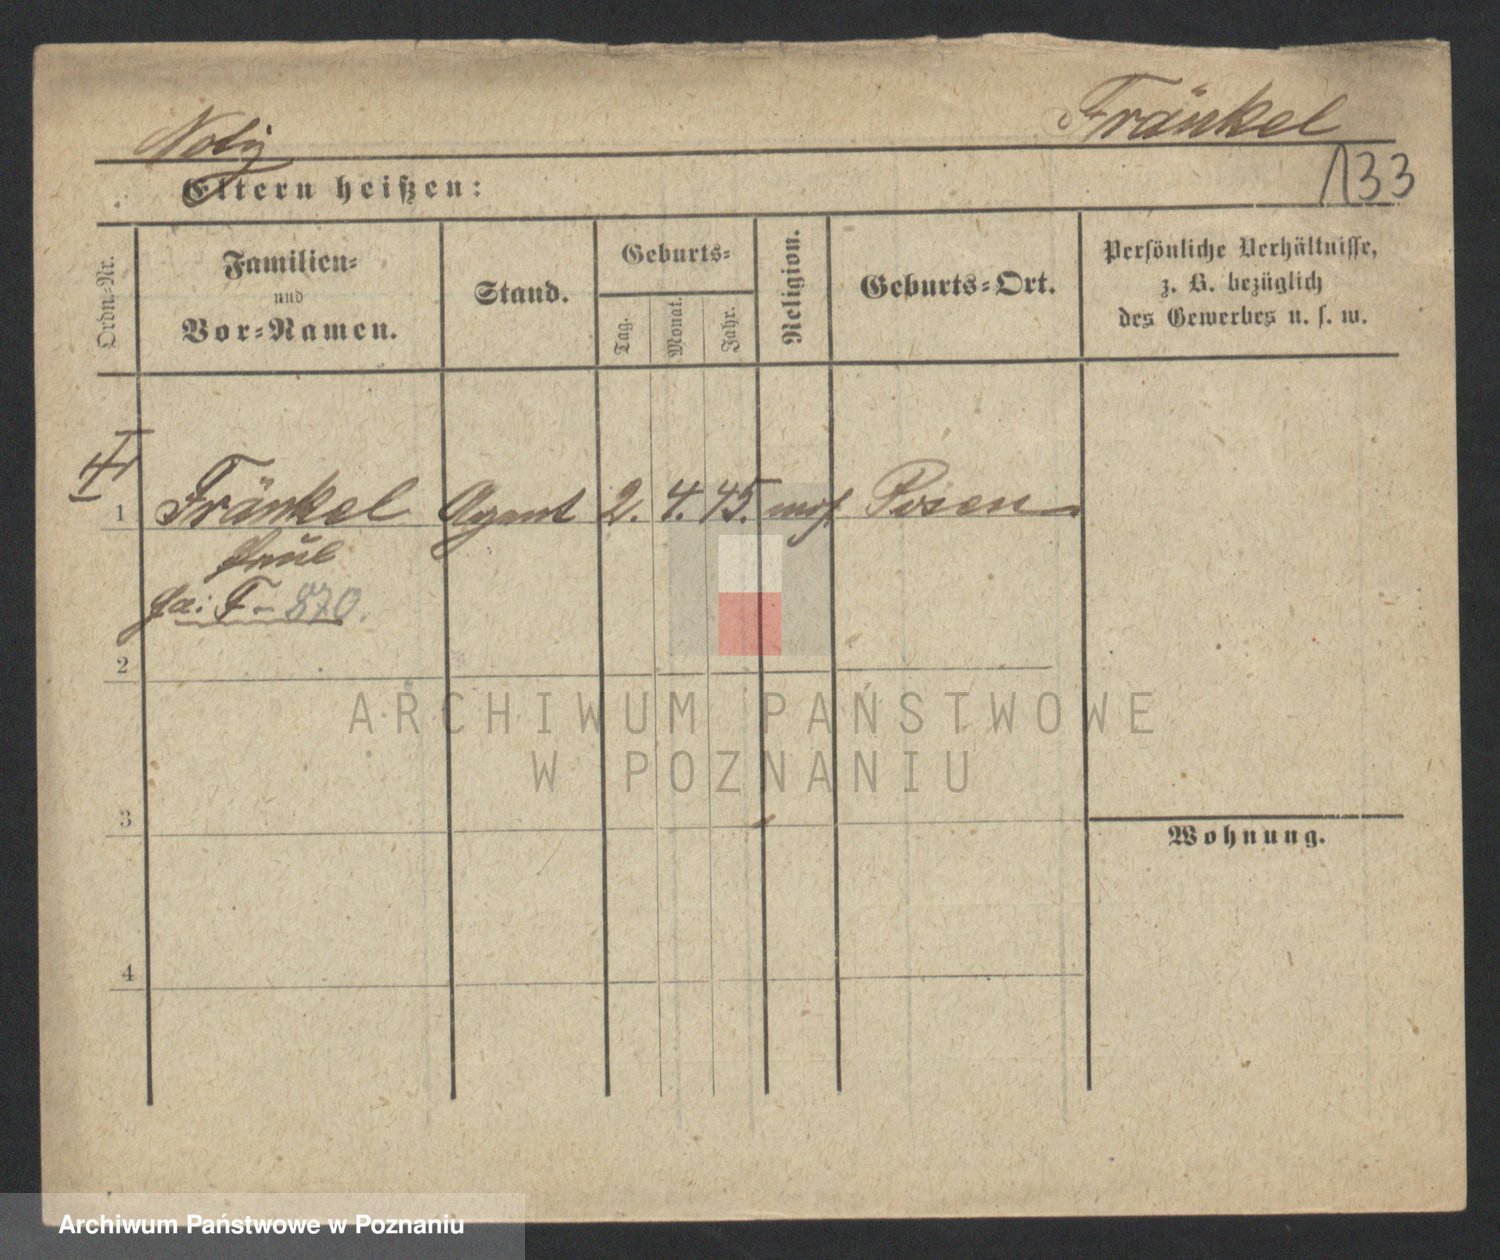 Notiz Fränkel
Eltern heißen: 133
Ordn.-Nr. Familien= und Vor=Namen. Stand. Geburts= Tag. Monat. Jahr. Religion. Geburts=Ort. Persönliche Verhältnisse, z. B. bezüglich des Gewerbes u. s. w.
1 Fränkel Agent 2. 4. 45. mos Posen
Paul
fa: F - 870.
2
ARCHIWUM PAŃSTWOWE
W POZNANIU
3
Wohnung.
4
Archiwum Państwowe w Poznaniu